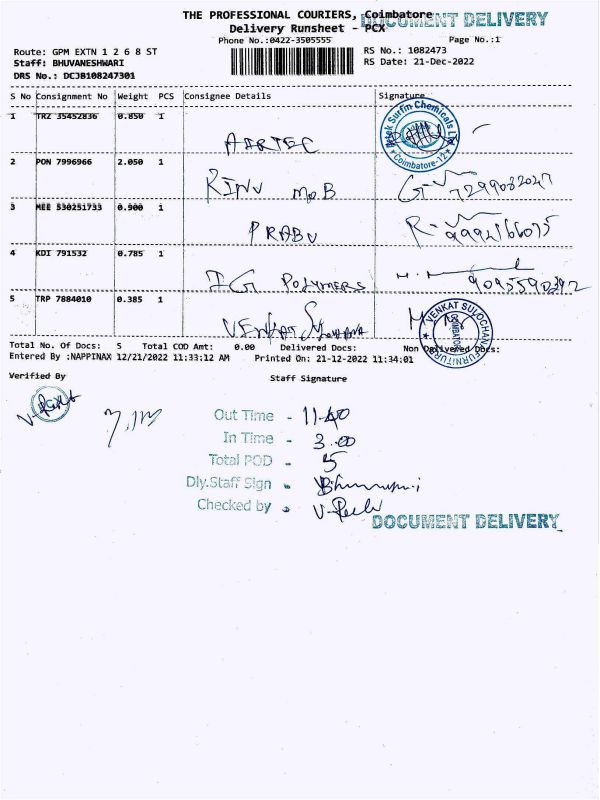 THE PROFESSIONAL COURIERS, Coimbatore
DOCUMENT DELIVERY
Delivery Runsheet - PCX
Phone No.:0422-3505555
Page No.:1
Route: GPM EXTN 1 2 6 8 ST
RS No.: 1082473
Staff: BHUVANESHWARI
RS Date: 21-Dec-2022
DRS No.: DCJB108247301
S No Consignment No Weight PCS Consignee Details Signature
1 TRZ 35452836 0.850 1 AIRTEC
Surfin Chemicals
Coimbatore-12
2 PON 7996966 2.050 1 RINU MOB
3 MEE 530251733 0.900 1 PRABU
4 KDI 791532 0.785 1 IG POLYMERS
5 TRP 7884010 0.385 1 VENKAT
VENKAT SULOCHANA FURNITURE
COIMBATORE
Total No. Of Docs: 5 Total COD Amt: 0.00 Delivered Docs: Non Delivered Docs:
Entered By :NAPPINAX 12/21/2022 11:33:12 AM Printed On: 21-12-2022 11:34:01
Verified By
Staff Signature
Out Time - 11-40
In Time - 3.00
Total POD - 5
Dly.Staff Sign -
Checked by -
DOCUMENT DELIVERY